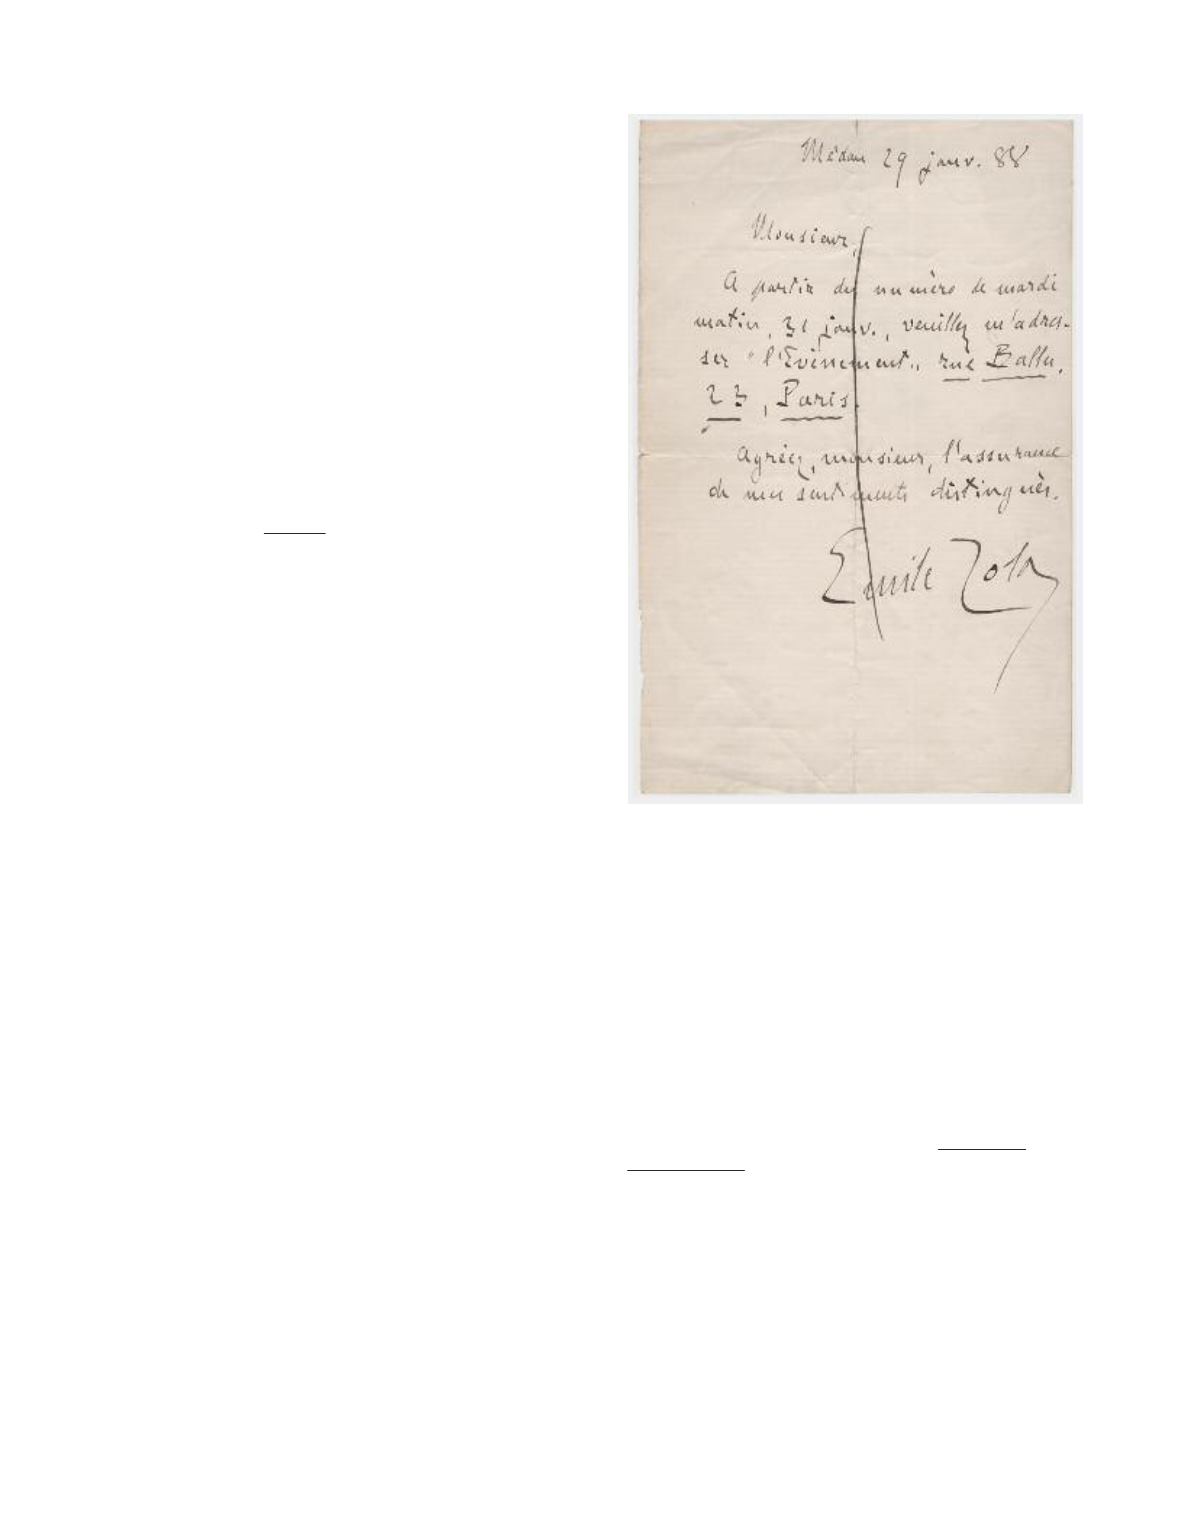 Médan 29 janv. 88
Monsieur,
A partir du numéro de mardi
matin, 31 janv., veuillez m'adres-
ser "l'Evénement", rue Ballu,
23, Paris.
Agréez, monsieur, l'assurance
de mes sentiments distingués.
Emile Zola